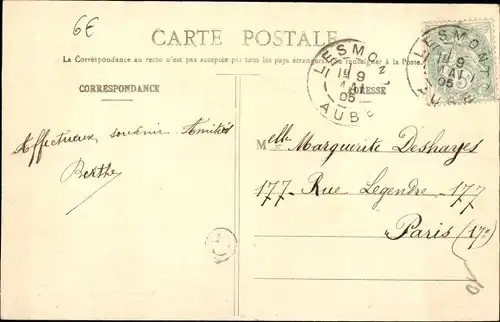 6€
CARTE POSTALE
La Correspondance au recto n'est pas acceptée par tous les pays étrangers. Se renseigner à la Poste.
CORRESPONDANCE
ADRESSE
LESMONT
19
MAI
05
AUBE
LESMONT
19
MAI
05
AUBE
Affectueux souvenir Amitiés
Berthe
Melle Marguerite Deshayes
177 - Rue Legendre - 177
Paris (17e)
10